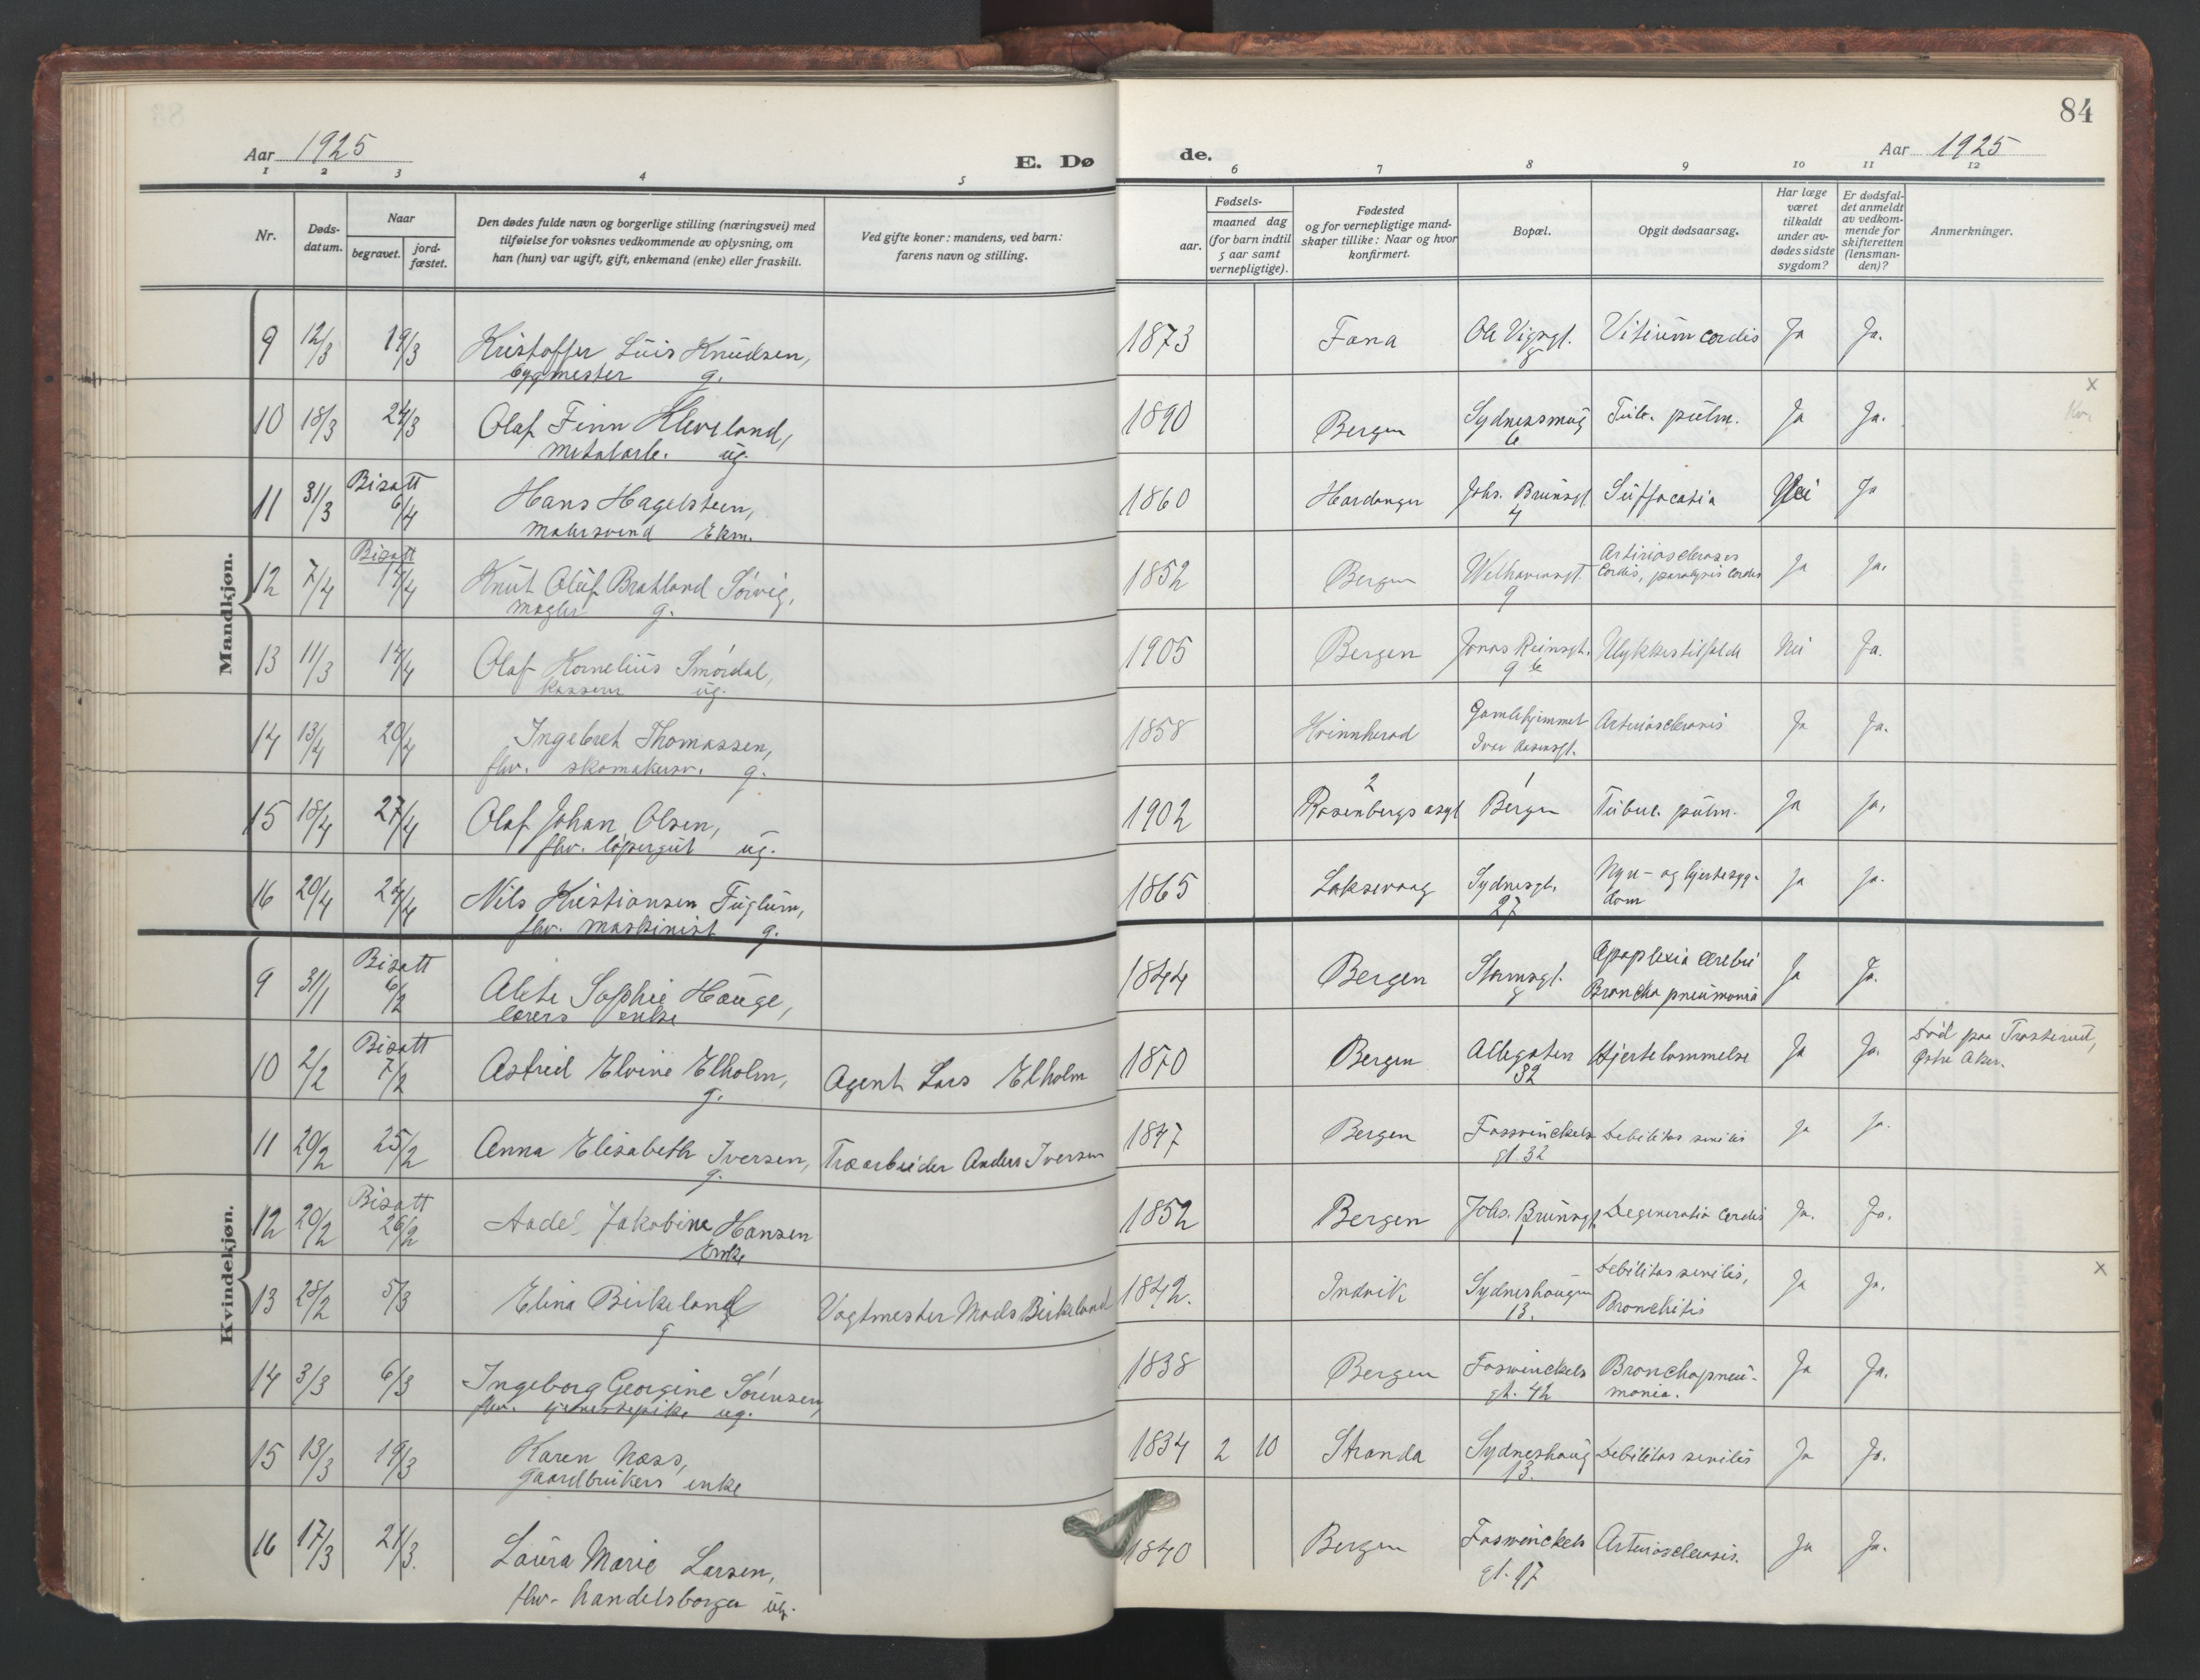 84
Aar 1925
E. Dø de.
Aar 1925
1 2 3 4 5 6 7 8 9 10 11 12
Nr.
Døds-
datum.
Naar
begravet.
jord-
fæstet.
Den dødes fulde navn og borgerlige stilling (næringsvei) med
tilføielse for voksnes vedkommende av oplysning, om
han (hun) var ugift, gift, enkemand (enke) eller fraskilt.
Ved gifte koner: mandens, ved barn:
farens navn og stilling.
Fødsels-
aar.
maaned dag
(for barn indtil
5 aar samt
vernepligtige).
Fødested
og for vernepligtige mand-
skaper tillike: Naar og hvor
konfirmert.
Bopæl.
Opgit dødsaarsag.
Har læge
været
tilkaldt
under av-
dødes sidste
sygdom?
Er dødsfal-
det anmeldt
av vedkom-
mende for
skifteretten
(lensman-
den)?
Anmerkninger.
Mandkjøn.
9 12/3 19/3 Kristoffer Luis Knudsen, 1873 Fana Ole Vigsgt. Vitium cordis Ja Ja.
bygmester g. 8
10 18/3 24/3 Olaf Finn Kleveland, 1890 Bergen Sydnessmug Tub. pulm. Ja Ja. x
metalarb. ug. 6
11 31/3 Bisatt 6/4 Hans Hagelsteen, 1860 Hardanger Johs. Brunsgt. Suffocatia Nei Ja
malersvend Ekm. 4
12 7/4 Bisatt 14/4 Knut Oluf Bratland Sørvig, 1852 Bergen Welhavensgt. Arterioscleroses Ja Ja.
mægler g. 9 cordis, paralysis cordis
13 11/3 14/4 Olaf Kornelius Smørdal, 1905 Bergen Jonas Reinsgt. Ulykkestilfelde Nei Ja.
kasserer ug. 9 b
14 13/4 20/4 Ingebret Thomassen, 1858 Kvinnherad Gamlehjemmet Arteriosclerosis Ja Ja.
fhv. skomakersv. g. Ivar Aasensgt.
15 18/4 27/4 Olaf Johan Olsen, 1902 2 Rosenbergs asyl 1 Bergen Tuberc. pulm. Ja Ja.
fhv. løpergut ug.
16 20/4 24/4 Nils Kristiansen Fuglum, 1865 Laksevaag Sydnesgt. Nyre- og hjertesyg- Ja Ja.
fhv. maskinist g. 27 dom
Kvindekjøn.
9 31/1 Bisatt 6/2 Alete Sophie Hauge, 1844 Bergen Stormsgt. Apoplexia cerebri Ja Ja.
lærers enke 8 Broncho pneumonia
10 2/2 Bisatt 7/2 Astrid Elvine Elholm, Agent Lars Elholm 1870 Bergen Allegaten Hjertelammelse Ja Ja. Død paa Trosterud,
g. 32 Østre Aker.
11 20/2 25/2 Anna Elisabeth Iversen, Træarbeider Anders Iversen 1847 Bergen Fosswinckels Debilitas senilis Ja Ja.
g. gt. 32
12 20/2 Bisatt 26/2 Aadel Jakobine Hansen 1852 Bergen Johs. Brunsgt. Degeneratio cordis Ja. Ja.
Enke 1
13 28/2 5/3 Elina Birkeland Vagtmester Mads Birkeland 1842. Indvik Sydneshaugen Debilitas senilis, Ja Ja. x
g 13. Bronchitis
14 3/3 6/3 Ingeborg Georgine Sørensen, 1838 Bergen Foswinckels Bronchopneu- Ja Ja.
fhv. tjenestepike ug. gt. 42 monia.
15 13/3 19/3 Karen Næss, 1834 2 10 Stranda Sydneshaug Debilitas senilis Ja Ja.
gaardbrukers enke 13.
16 17/3 21/3. Laura Marie Larsen, 1840 Bergen Foswinckels Arteriosclerosis. Ja Ja.
fhv. handelsborger ug. gt. 17